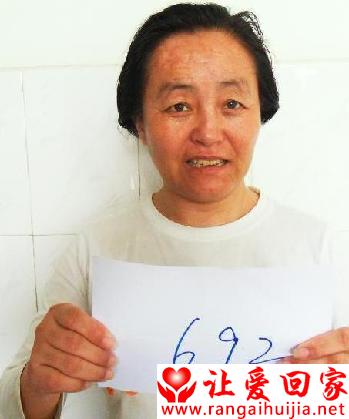 692
让爱回家
www.rangaihuijia.net